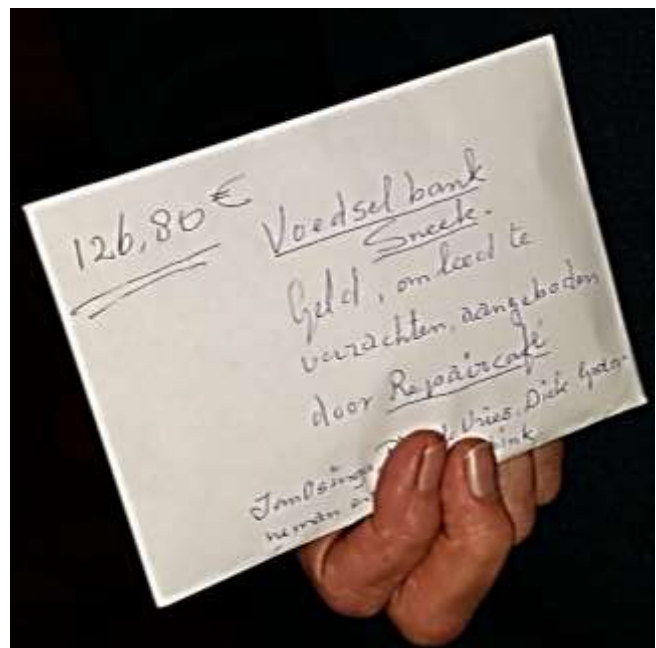 126,80 €
Voedselbank
Sneek.
Geld, om leed te
verzachten, aangeboden
door Repaircafé
Jan Osinga, Vries, Dick
neman en